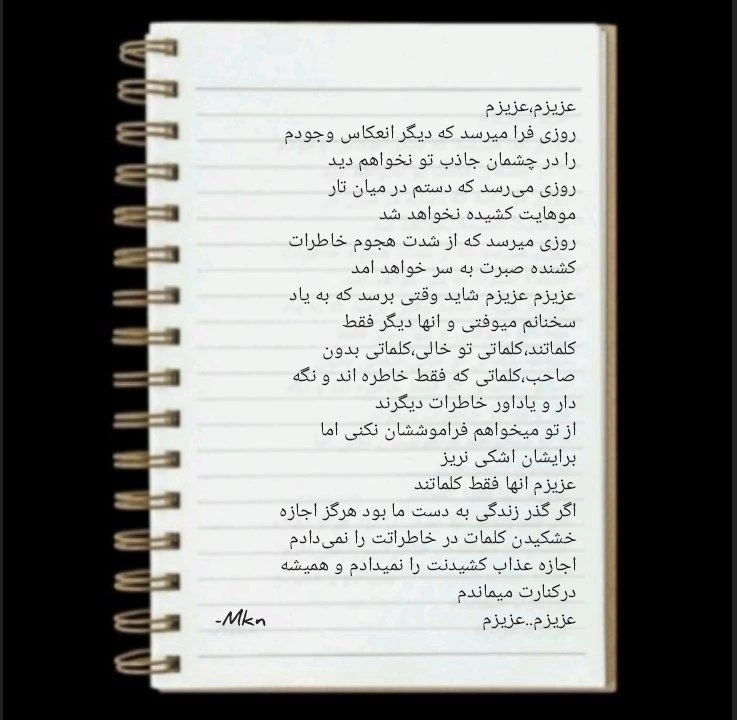 عزیزم،عزیزم
روزی فرا میرسد که دیگر انعکاس وجودم
را در چشمان جاذب تو نخواهم دید
روزی می‌رسد که دستم در میان تار
موهایت کشیده نخواهد شد
روزی میرسد که از شدت هجوم خاطرات
کشنده صبرت به سر خواهد امد
عزیزم عزیزم شاید وقتی برسد که به یاد
سخنانم میوفتی و انها دیگر فقط
کلماتند،کلماتی تو خالی،کلماتی بدون
صاحب،کلماتی که فقط خاطره اند و نگه
دار و یاداور خاطرات دیگرند
از تو میخواهم فراموششان نکنی اما
برایشان اشکی نریز
عزیزم انها فقط کلماتند
اگر گذر زندگی به دست ما بود هرگز اجازه
خشکیدن کلمات در خاطراتت را نمی‌دادم
اجازه عذاب کشیدنت را نمیدادم و همیشه
درکنارت میماندم
عزیزم..عزیزم
-Mkn